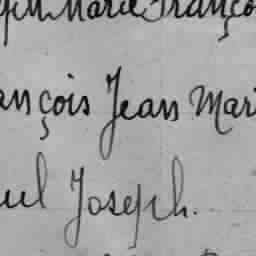 Marie Franço
ançois Jean Mari
ul Joseph.